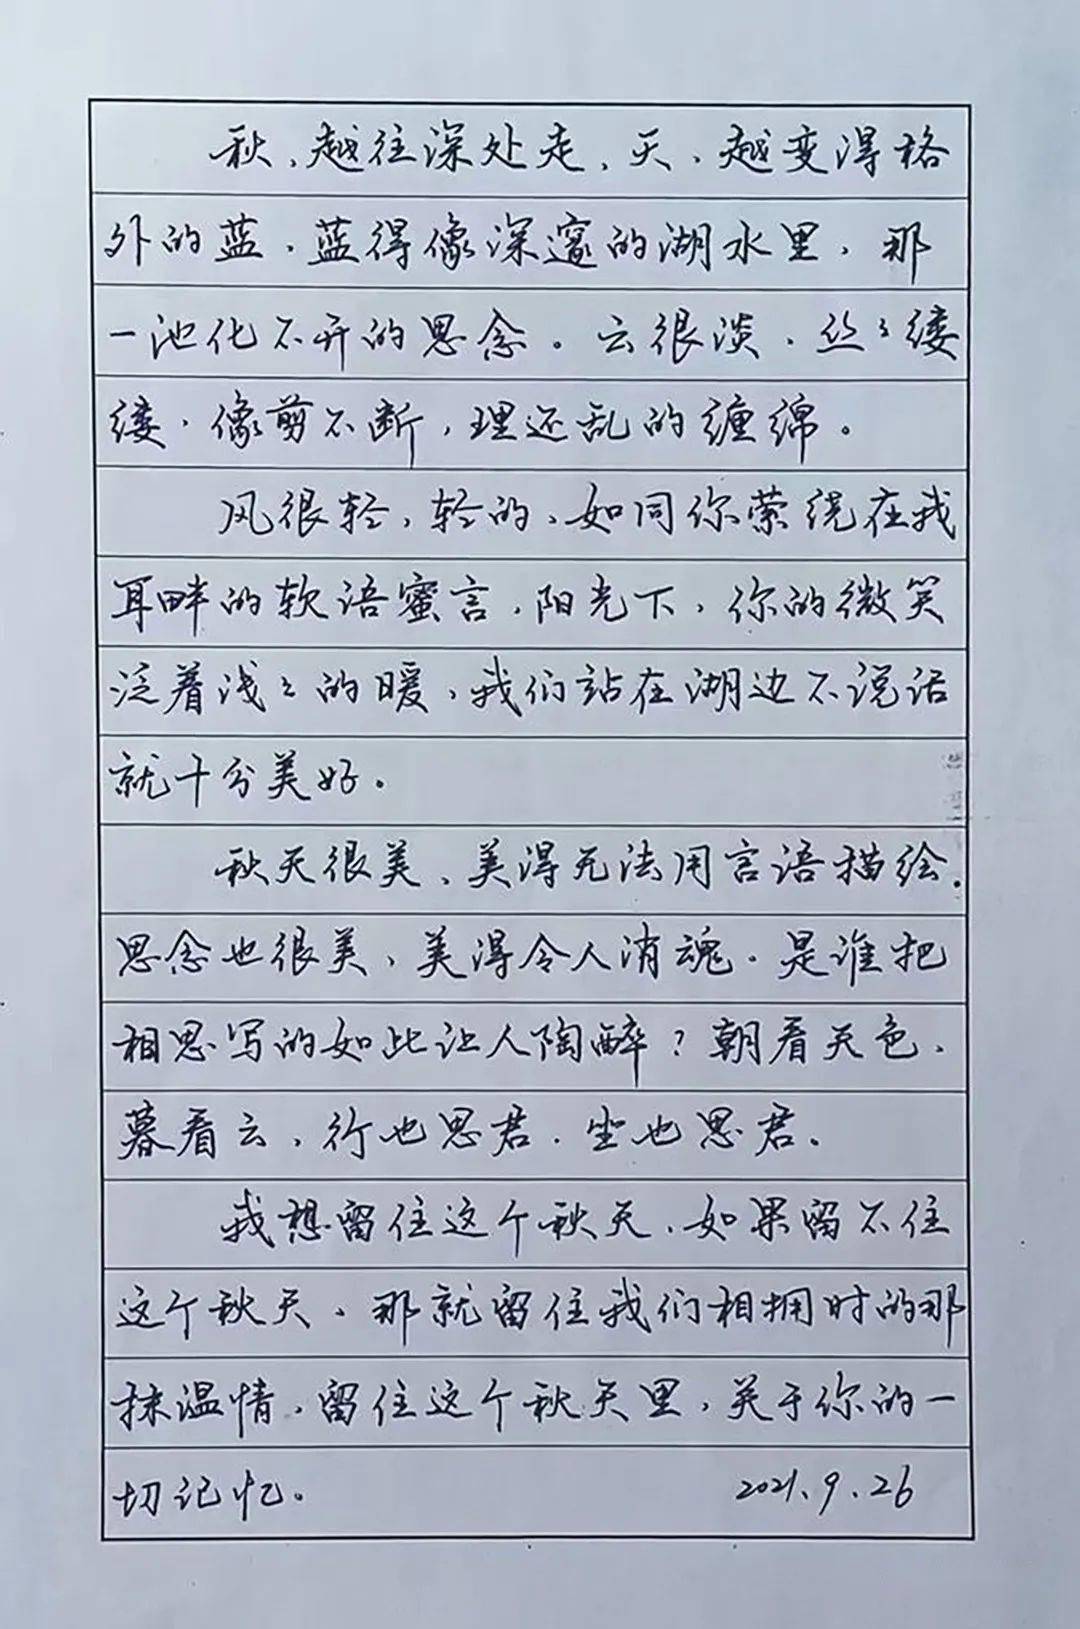 秋，越往深处走，天，越变得格
外的蓝，蓝得像深邃的湖水里，那
一池化不开的思念。云很淡，丝丝缕
缕，像剪不断，理还乱的缠绵。
风很轻，轻的，如同你萦绕在我
耳畔的软语蜜言，阳光下，你的微笑
泛着浅浅的暖，我们站在湖边不说话
就十分美好。
秋天很美，美得无法用言语描绘，
思念也很美，美得令人消魂。是谁把
相思写的如此让人陶醉？朝看天色，
暮看云，行也思君，坐也思君。
我想留住这个秋天，如果留不住
这个秋天，那就留住我们相拥时的那
抹温情，留住这个秋天里，关于你的一
切记忆。 2021.9.26